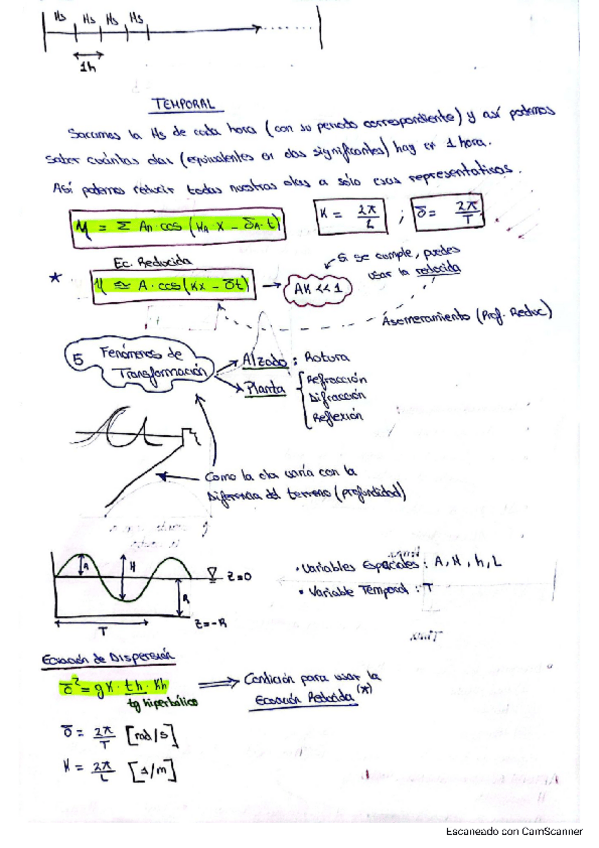 Hs Hs Hs Hs
1h
TEMPORAL
Sacamos la Hs de cada hora (con su periodo correspondiente) y así podemos
saber cuántas olas (equivalentes or olas significantes) hay en 1 hora.
Así podemos reducir todas nuestras olas a sólo esas representativas.
η = Σ An cos (KA x - σA·t)
K = 2π/L ; σ = 2π/T
Ec. Reducida
* η ≃ A·cos(Kx - σt) → AK << 1
Si se cumple, puedes
usar la reducida
Asomeramiento (Prof. Reduc)
5 Fenómenos de
Transformación
Alzado: Rotura
Planta
Refracción
Difracción
Reflexión
Como la ola varía con la
Diferencia del terreno (profundidad)
A H z=0
h
z=-h
T
• Variables Espaciales: A, H, h, L
• Variable Temporal: T
Ecuación de Dispersión
σ² = gK·th·Kh
tg hiperbólico
Condición para usar la
Ecuación Reducida (*)
σ = 2π/T [rad/s]
K = 2π/L [1/m]
Escaneado con CamScanner